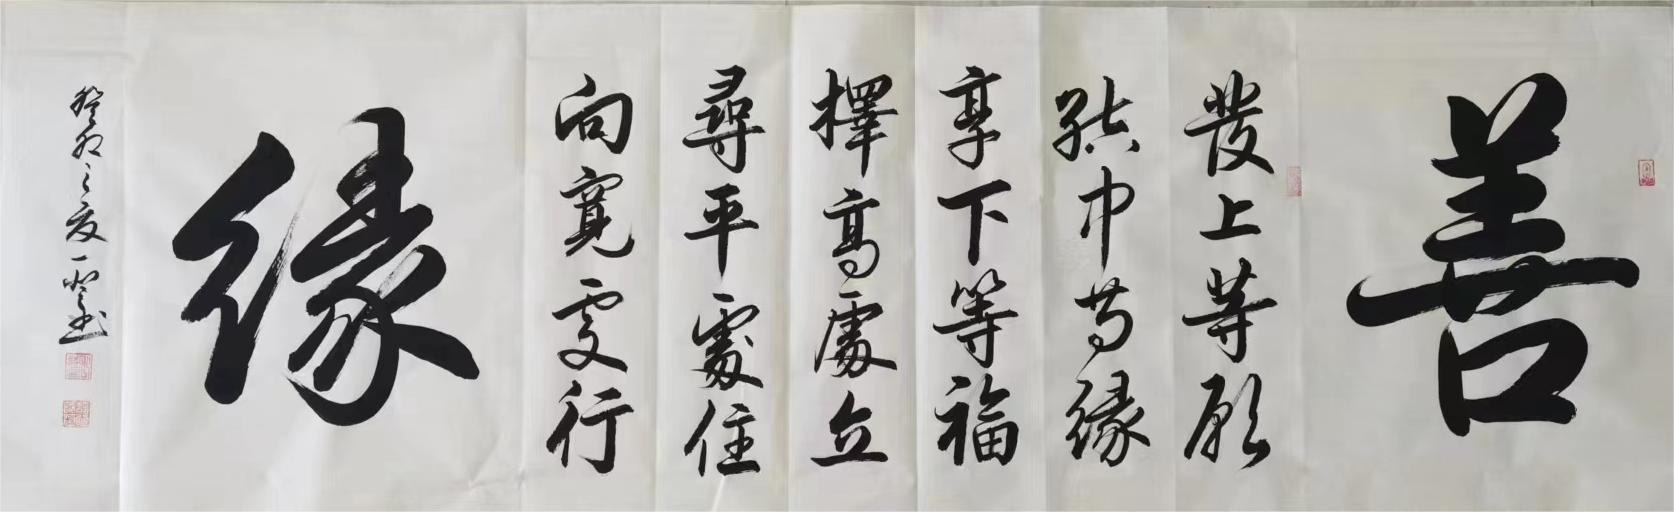 善
發上等願
結中等緣
享下等福
擇高處立
尋平處住
向寬處行
緣
癸卯之夏